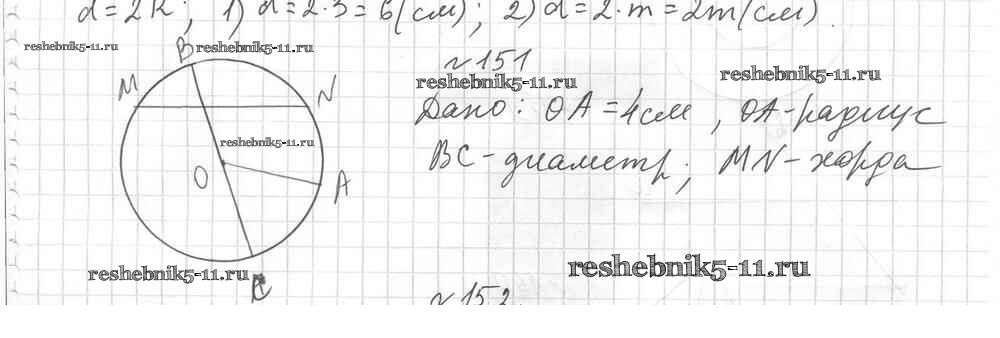 d = 2R; 1) d = 2·3 = 6 (см); 2) d = 2·m = 2m (см).
reshebnik5-11.ru
B reshebnik5-11.ru
№151
M N
reshebnik5-11.ru reshebnik5-11.ru
Дано: OA = 4см, OA - радиус
reshebnik5-11.ru
BC - диаметр; MN - хорда
O A
reshebnik5-11.ru reshebnik5-11.ru
C
№152